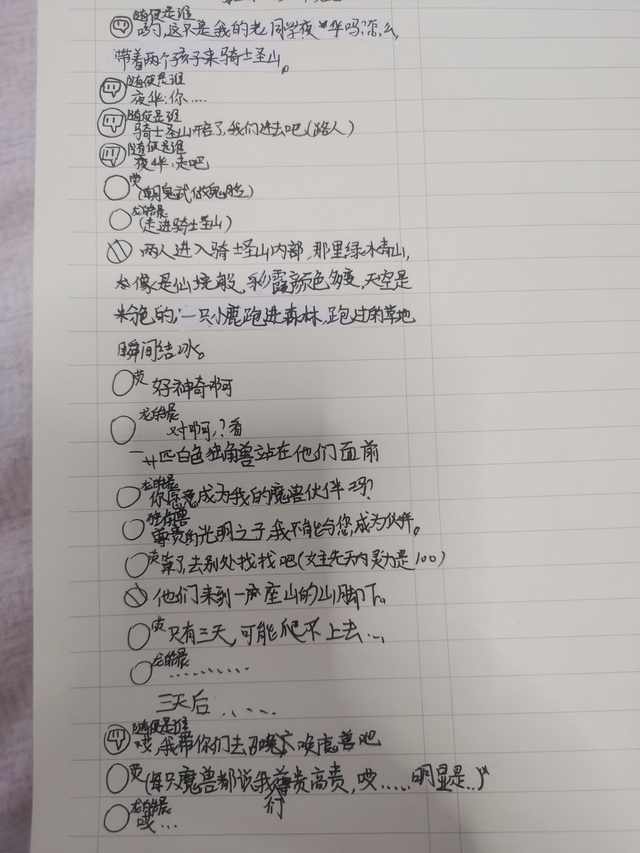 随便是谁
哟,这不是我的老同学夜华吗?怎么,
带着两个孩子来骑士圣山。
随便是谁
夜华:你....
随便是谁
骑士圣山开启了,我们进去吧(路人)
随便是谁
夜华:走吧
龙皓晨
(走进骑士圣山)
两人进入骑士圣山内部,那里绿水青山,
像是仙境般,彩霞颜色多变,天空是
的,一只小鹿跑进森林,跑过的草地
瞬间结冰。
好神奇啊
龙皓晨
对啊,?看
一匹白色独角兽站在他们面前
龙皓晨
你愿意成为我的魔兽伙伴吗?
独角兽
尊贵的光明之子,我不能与您,成为伙伴。
算了,去别处找找吧(女主先天内灵力是100)
他们来到一座山的山脚下。
只有三天,可能爬不上去...
龙皓晨
..........
三天后.....
随便是谁
哎,我带你们去召唤魔兽吧
(每只魔兽都说我们尊贵高贵,哎.....明显是..)
龙皓晨
哦...